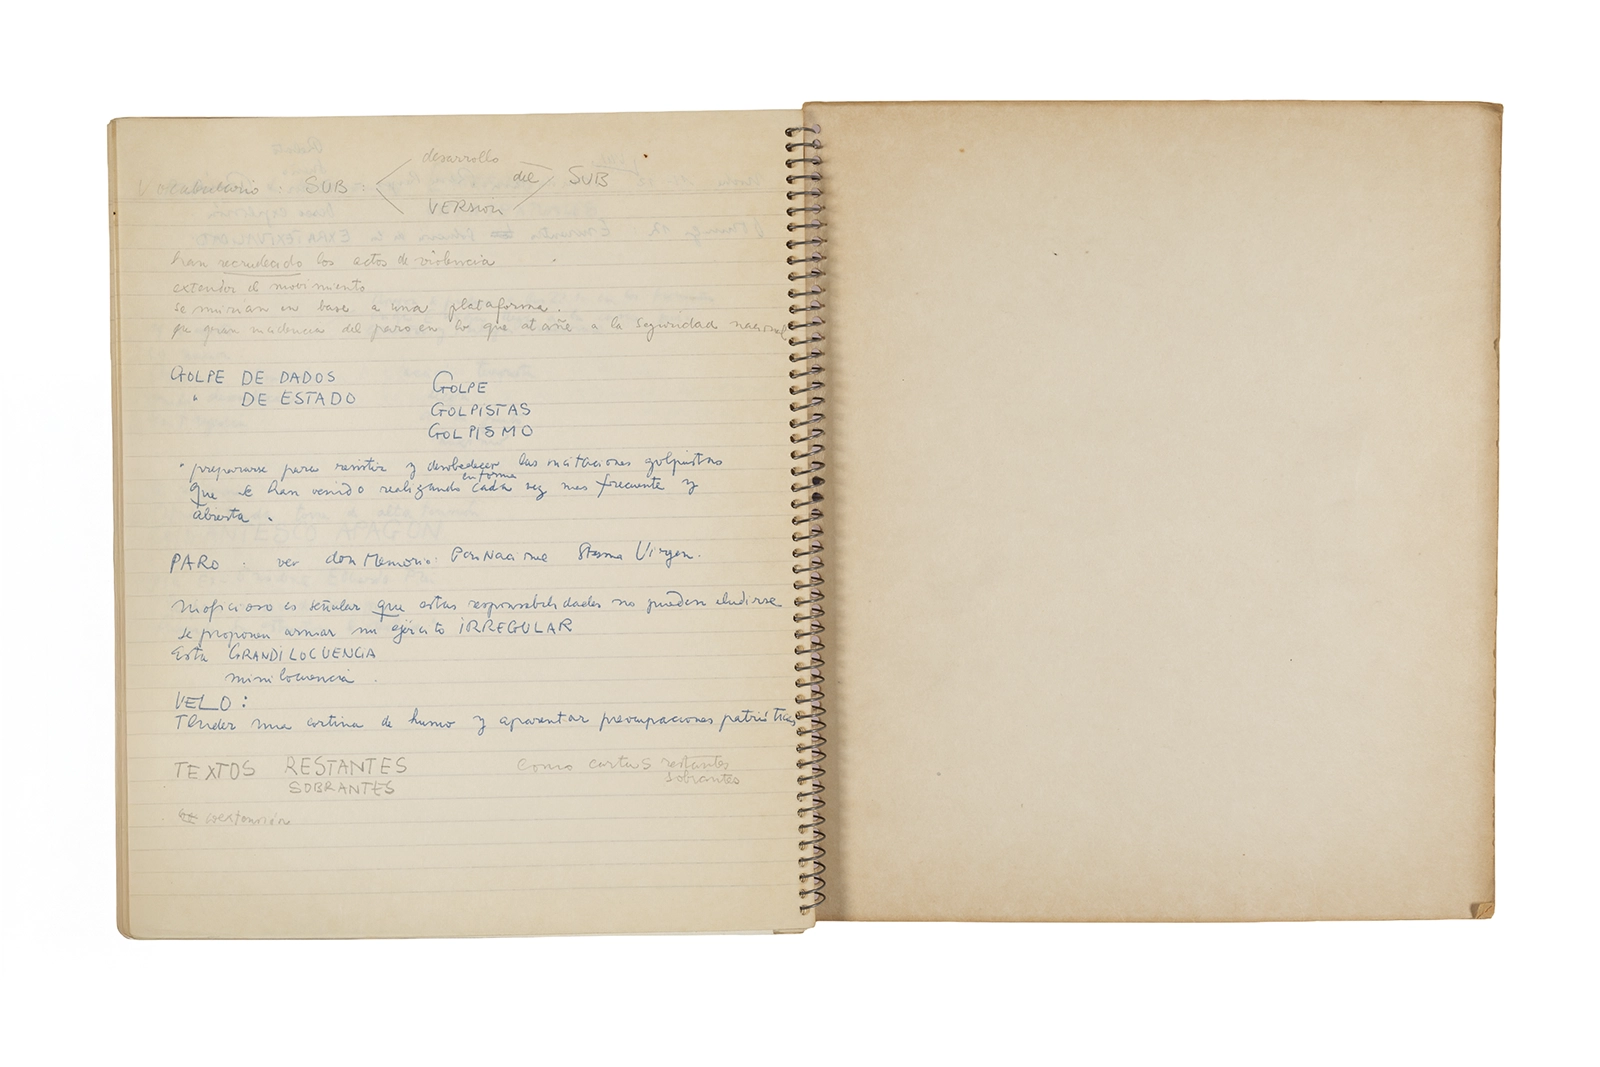 desarrollo
Vocabulario : SUB : del SUB
VERSION
han recrudecido los actos de violencia
extender el movimiento
en base a una plataforma.
gran del paro en lo que atañe a la seguridad nacional
GOLPE DE DADOS GOLPE
" DE ESTADO GOLPISTAS
GOLPISMO
" prepararse para resistir y desobedecer las incitaciones golpistas
en forma
que se han venido realizando cada vez mas frecuente y
abierta .
PARO . ver don Memorio: Virgen.
Inoficioso es señalar que estas responsabilidades no pueden eludirse
se proponen armar un ejército IRREGULAR
Esta GRANDILOCUENCIA
minilocuencia .
VELO :
Tender una cortina de humo y aparentar preocupaciones patrióticas
TEXTOS RESTANTES como cartas restantes
SOBRANTES sobrantes